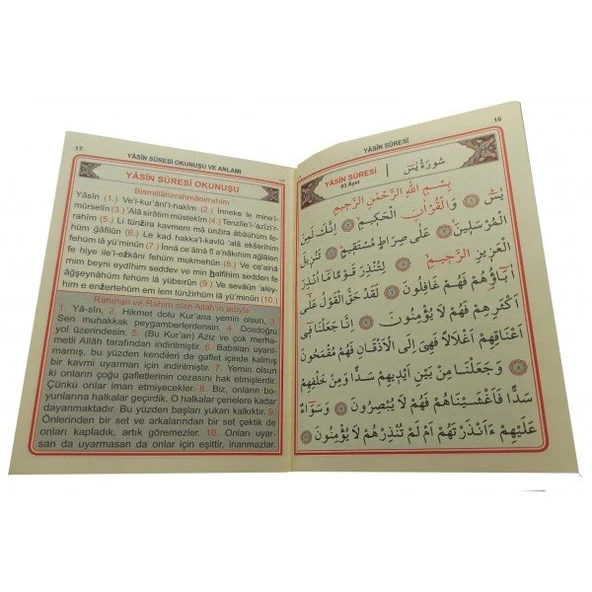 17
YÂSİN SÛRESİ OKUNUŞU VE ANLAMI
YÂSİN SÛRESİ OKUNUŞU
Bismillâhirrahmânirrahîm
Yâsîn (1.) Ve'l-kur'âni'l-hakîm (2.) İnneke le mine'l-
mürselîn (3.) 'Alâ sirâtim müstekîm (4.) Tenzîle'l-'azîzi'r-
rahîm (5.) Li tünžira kavmem mâ ünžira âbâühüm fe-
hüm ğâfilûn (6.) Le kad hakka'l-kavlü 'alâ ekšerihim
fehüm lâ yü'minûn (7.) İnnâ ce'alnâ fî a'nâkihim ağlâlen
fe hiye ile'l-ežkâni fehüm mukmehûn (8.) Ve ce'alnâ
mim beyni eydîhim sedden ve min halfihim sedden fe
ağşeynâhüm fehüm lâ yübsırûn (9.) Ve sevâün 'aley-
him e enžertehüm em lem tünžirhüm lâ yü'minûn (10.)
Rahman ve Rahim olan Allah'ın adıyla
1. Yâ-sîn. 2. Hikmet dolu Kur'ana yemin olsun, 3.
Sen muhakkak peygamberlerdensin. 4. Dosdoğru
yol üzerindesin. 5. (Bu Kur'an) Aziz ve çok merha-
metli Allâh tarafından indirilmiştir. 6. Babaları uyarıl-
mamış, bu yüzden kendileri de gaflet içinde kalmış
bir kavmi uyarman için indirilmiştir. 7. Yemin olsun
ki onların çoğu gafletlerinin cezasını hak etmişlerdir.
Çünkü onlar iman etmiyecekler. 8. Biz, onların bo-
yunlarına halkalar geçirdik. O halkalar çenelere kadar
dayanmaktadır. Bu yüzden başları yukarı kalkıktır. 9.
Önlerinden bir set ve arkalarından bir set çektik de
onları kapladık, artık göremezler. 10. Onları uyar-
san da uyarmasan da onlar için eşittir, inanmazlar.
16
YÂSİN SÛRESİ
YÂSİN SÛRESİ
83 Ayet
سُورَةُ يٰسٓ
بِسْمِ اللّٰهِ الرَّحْمٰنِ الرَّحِيمِ
يٰسٓ ﴿١﴾ وَالْقُرْاٰنِ الْحَكِيمِ ﴿٢﴾ اِنَّكَ لَمِنَ
الْمُرْسَلِينَ ﴿٣﴾ عَلٰى صِرَاطٍ مُسْتَقِيمٍ ﴿٤﴾ تَنْزِيلَ
الْعَزِيزِ الرَّحِيمِ ﴿٥﴾ لِتُنْذِرَ قَوْمًا مَٓا اُنْذِرَ
اٰبَٓاؤُهُمْ فَهُمْ غَافِلُونَ ﴿٦﴾ لَقَدْ حَقَّ الْقَوْلُ عَلٰٓى
اَكْثَرِهِمْ فَهُمْ لَا يُؤْمِنُونَ ﴿٧﴾ اِنَّا جَعَلْنَا فِٓى
اَعْنَاقِهِمْ اَغْلَالًا فَهِىَ اِلَى الْاَذْقَانِ فَهُمْ مُقْمَحُونَ
﴿٨﴾ وَجَعَلْنَا مِنْ بَيْنِ اَيْدِيهِمْ سَدًّا وَمِنْ خَلْفِهِمْ
سَدًّا فَاَغْشَيْنَاهُمْ فَهُمْ لَا يُبْصِرُونَ ﴿٩﴾ وَسَوَٓاءٌ
عَلَيْهِمْ ءَاَنْذَرْتَهُمْ اَمْ لَمْ تُنْذِرْهُمْ لَا يُؤْمِنُونَ ﴿١٠﴾